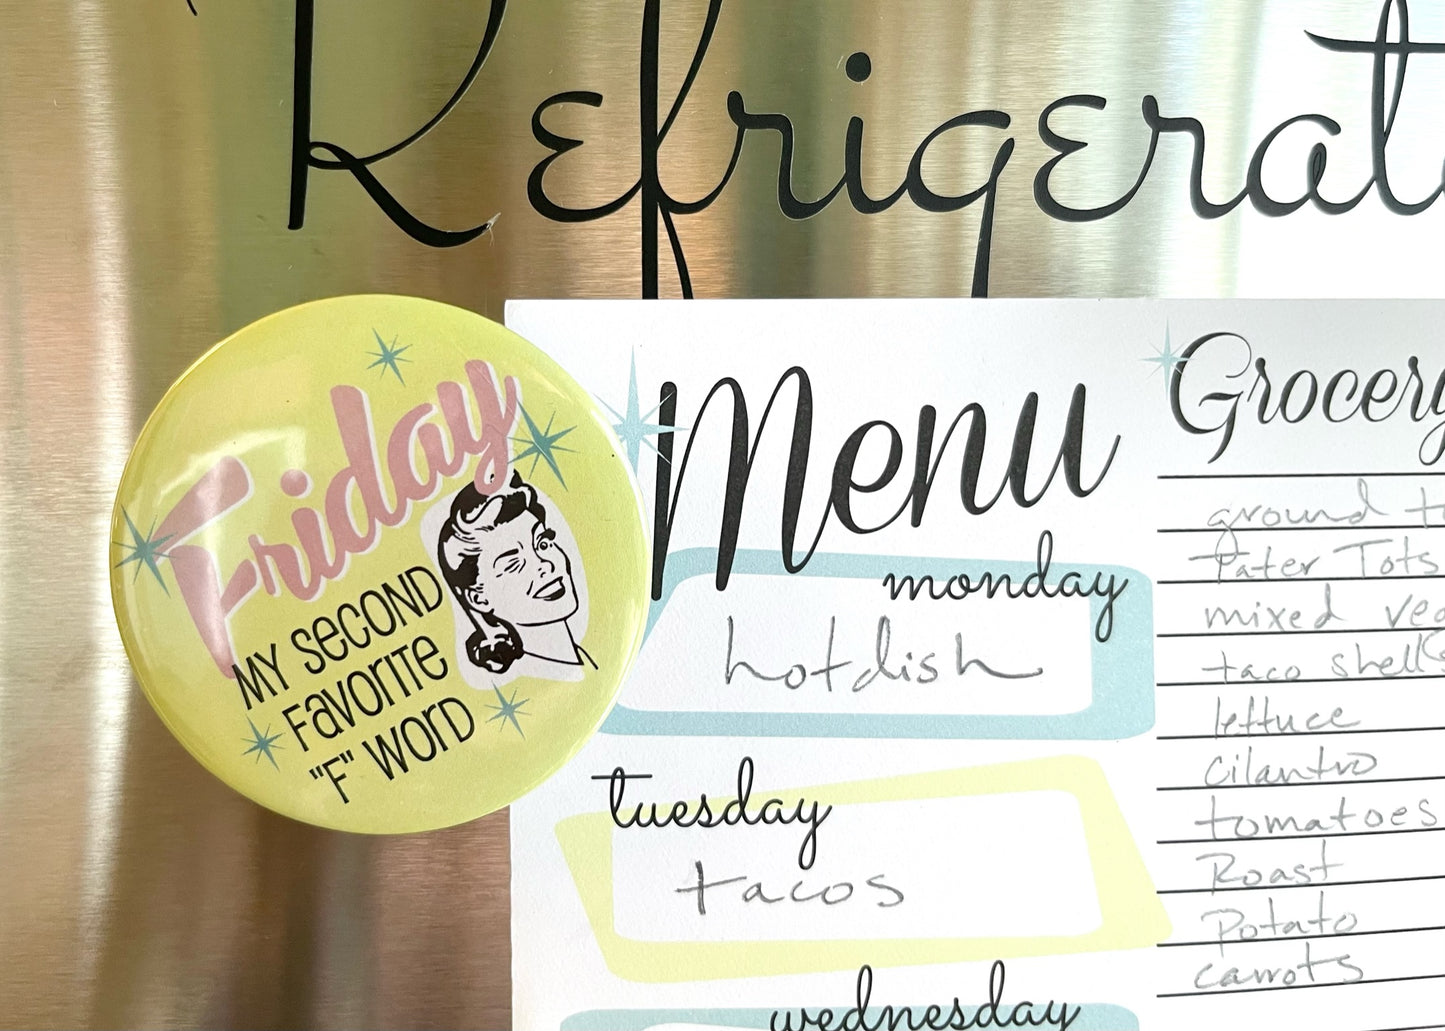 Refrigerat
Friday
MY SECOND
FAVORITE
"F" WORD
Menu
monday
hotdish
tuesday
tacos
wednesday
Grocery
ground
Tater Tots
mixed veg
taco shells
lettuce
cilantro
tomatoes
Roast
Potato
carrots